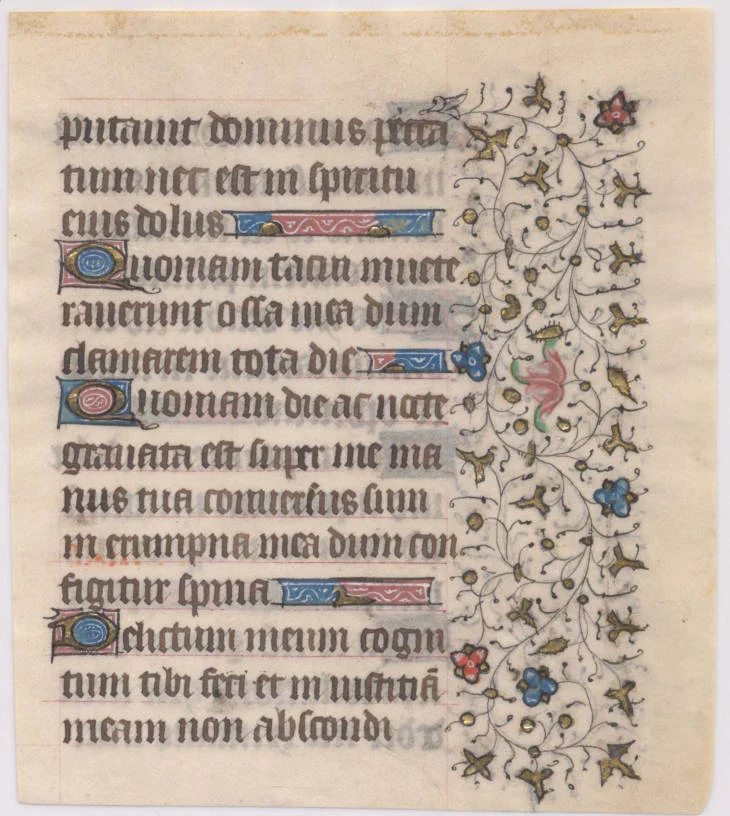 putauit dominus pecca
tum nec est in spiritu
eius dolus
Quoniam tacui inuete
rauerunt ossa mea dum
clamarem tota die
Quoniam die ac nocte
grauata est super me ma
nus tua conuersus sum
in erumpna mea dum con
figitur spina
Delictum meum cogni
tum tibi feci et in iustitiā
meam non abscondi